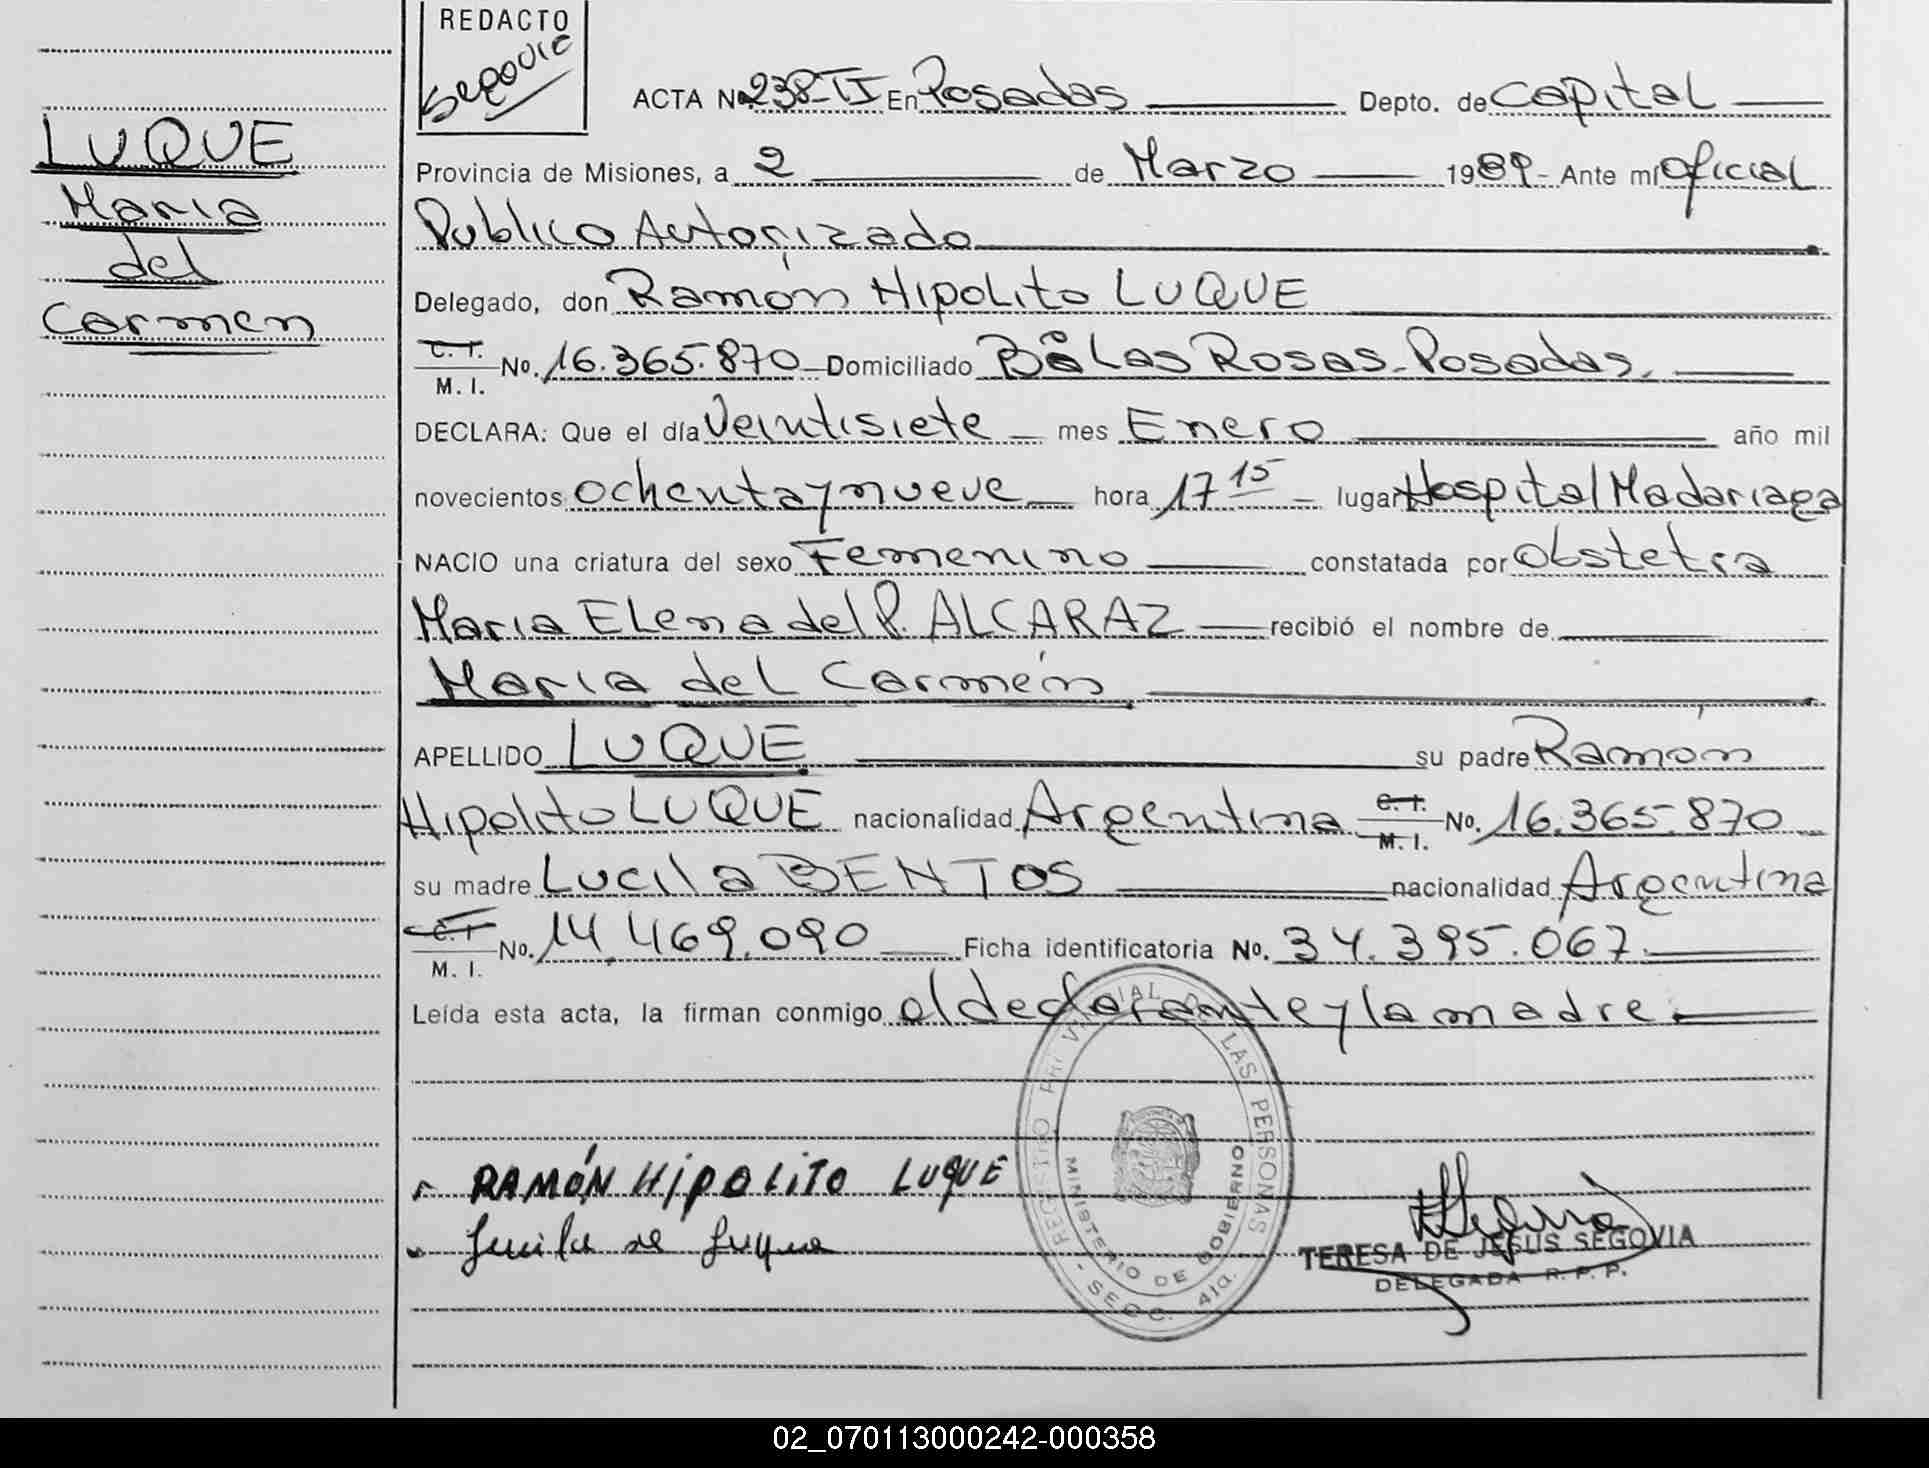 REDACTO
Segovia
LUQUE
Maria
del
Carmen
ACTA No 238-TI En Posadas Depto. de Capital
Provincia de Misiones, a 2 de Marzo 1989- Ante mí Oficial
Publico Autorizado
Delegado, don Ramón Hipolito LUQUE
C. I. M. I. No. 16.365.870 Domiciliado Bº Las Rosas-Posadas,
DECLARA: Que el día Veintisiete mes Enero año mil
novecientos ochenta y nueve hora 17 15 lugar Hospital Madariaga
NACIO una criatura del sexo Femenino constatada por Obstetra
Maria Elena del P. ALCARAZ recibió el nombre de
Maria del Carmén
APELLIDO LUQUE su padre Ramón
Hipolito LUQUE nacionalidad Argentina C. I. M. I. No. 16.365.870
su madre Lucila BENTOS nacionalidad Argentina
C. I. M. I. No. 14.469.090 Ficha identificatoria No. 34.395.067.
Leída esta acta, la firman conmigo el declarante y la madre.
REGISTRO PROVINCIAL DE LAS PERSONAS
MINISTERIO DE GOBIERNO
- SECC. 4ta.
RAMÓN HipoLiTo LUQUE
Lucila de Luque
TERESA DE JESUS SEGOVIA
DELEGADA R. P. P.
02_070113000242-000358